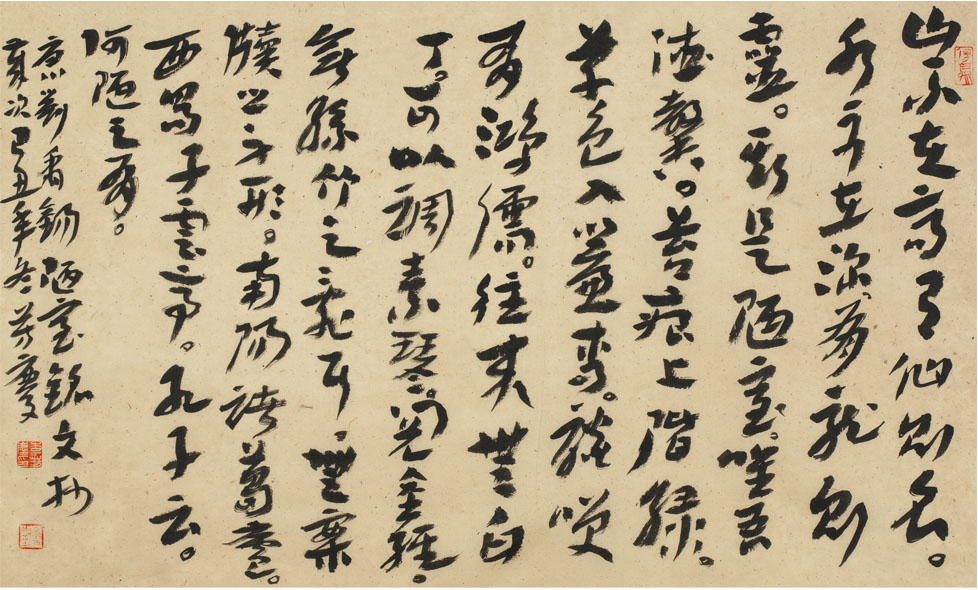 山不在高有仙則名。
水不在深有龍則
靈。斯是陋室。唯吾
德馨。苔痕上階綠。
草色入簾青。談笑
有鴻儒。往來無白
丁。可以調素琴。閱金經。
無絲竹之亂耳。無案
牘之勞形。南陽諸葛廬。
西蜀子雲亭。孔子云。
何陋之有。
唐劉禹錫陋室銘文抄
歲次己丑年冬